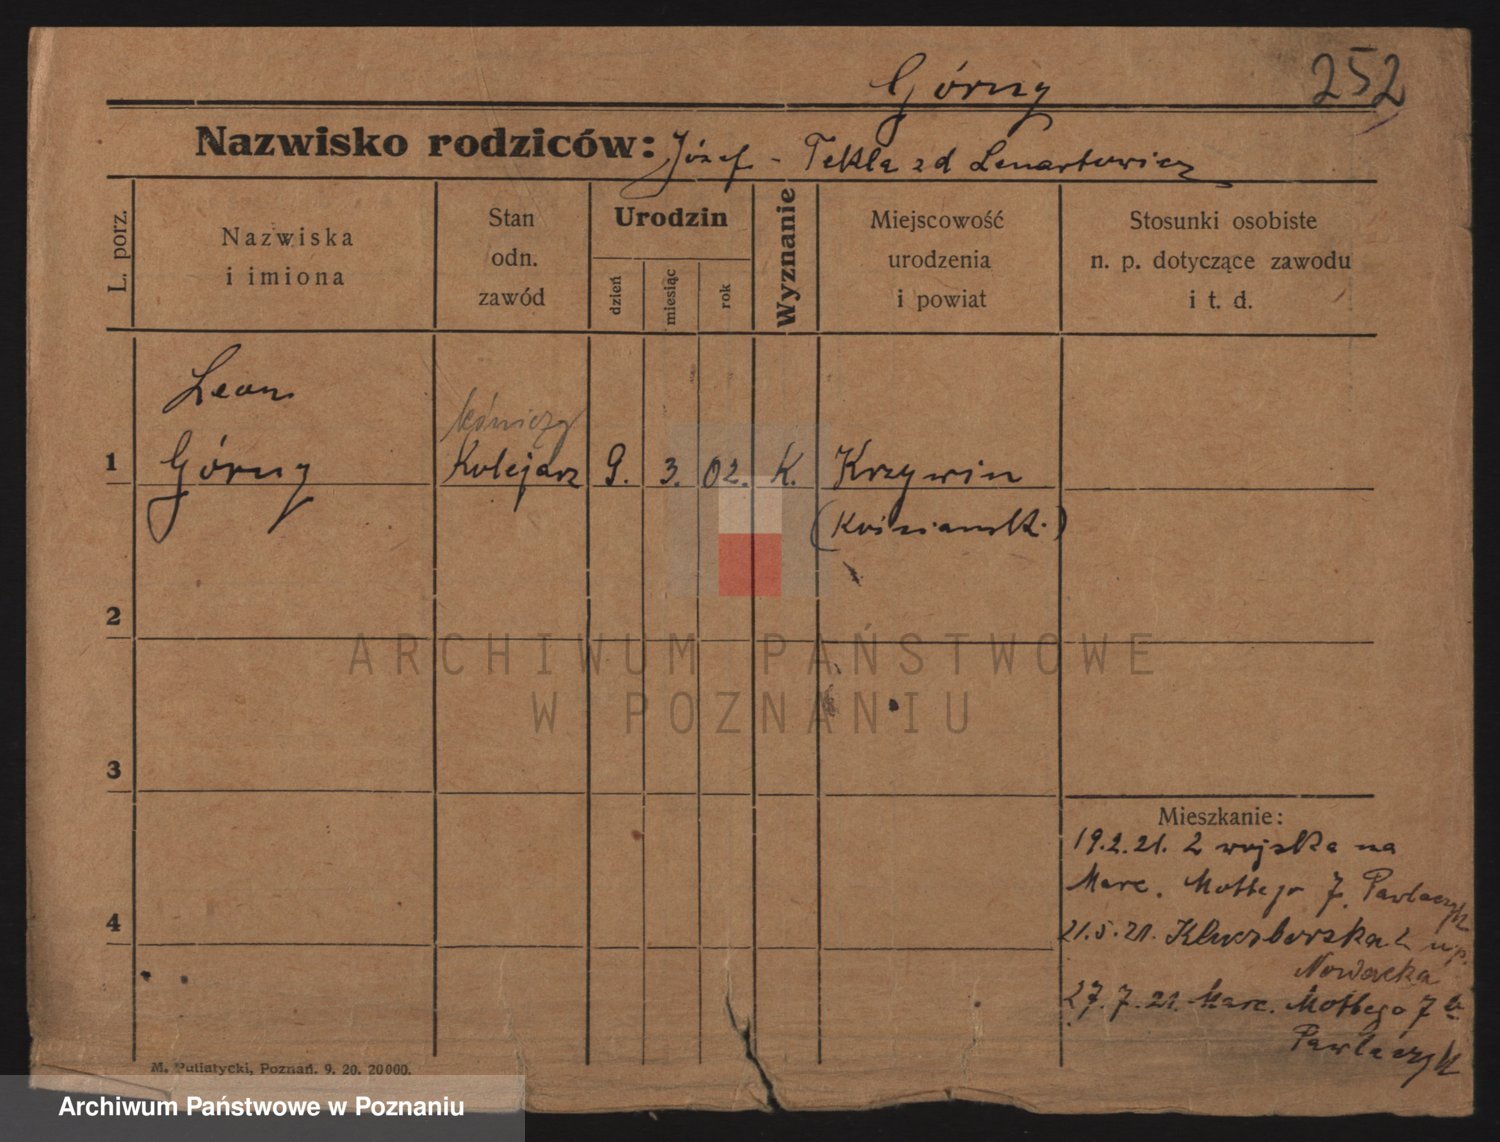 Górny 252
Nazwisko rodziców: Józef - Tekla zd Lenartowicz
L. porz.
Nazwiska
i imiona
Stan
odn.
zawód
Urodzin
dzień
miesiąc
rok
Wyznanie
Miejscowość
urodzenia
i powiat
Stosunki osobiste
n. p. dotyczące zawodu
i t. d.
Leon
1 Górny Kolejarz 9. 3. 02. K. Krzywin
(Kościańsk.)
2
ARCHIWUM PAŃSTWOWE
W POZNANIU
3
Mieszkanie:
19.2.21. z wojska na
Marc. Mottego 7. Pawlaczyk
4
21.5.21. Kluczborska 2 u p.
Nowacka
27.7.21. Marc. Mottego 7
Pawlaczyk
M. Putiatycki, Poznań. 9. 20. 20000.
Archiwum Państwowe w Poznaniu